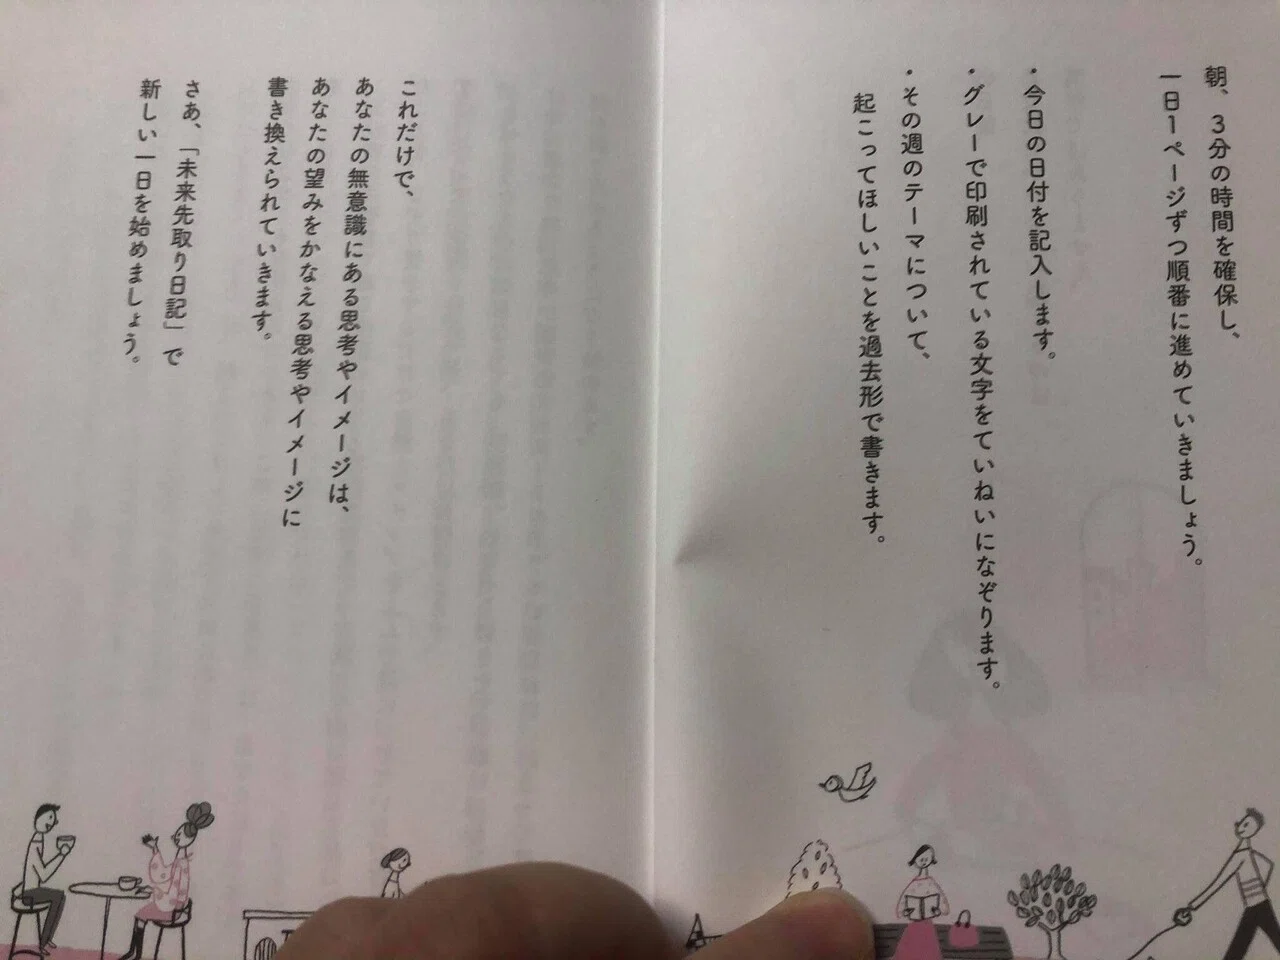 朝、3分の時間を確保し、
一日1ページずつ順番に進めていきましょう。
・今日の日付を記入します。
・グレーで印刷されている文字をていねいになぞります。
・その週のテーマについて、
起こってほしいことを過去形で書きます。
これだけで、
あなたの無意識にある思考やイメージは、
あなたの望みをかなえる思考やイメージに
書き換えられていきます。
さあ、「未来先取り日記」で
新しい一日を始めましょう。